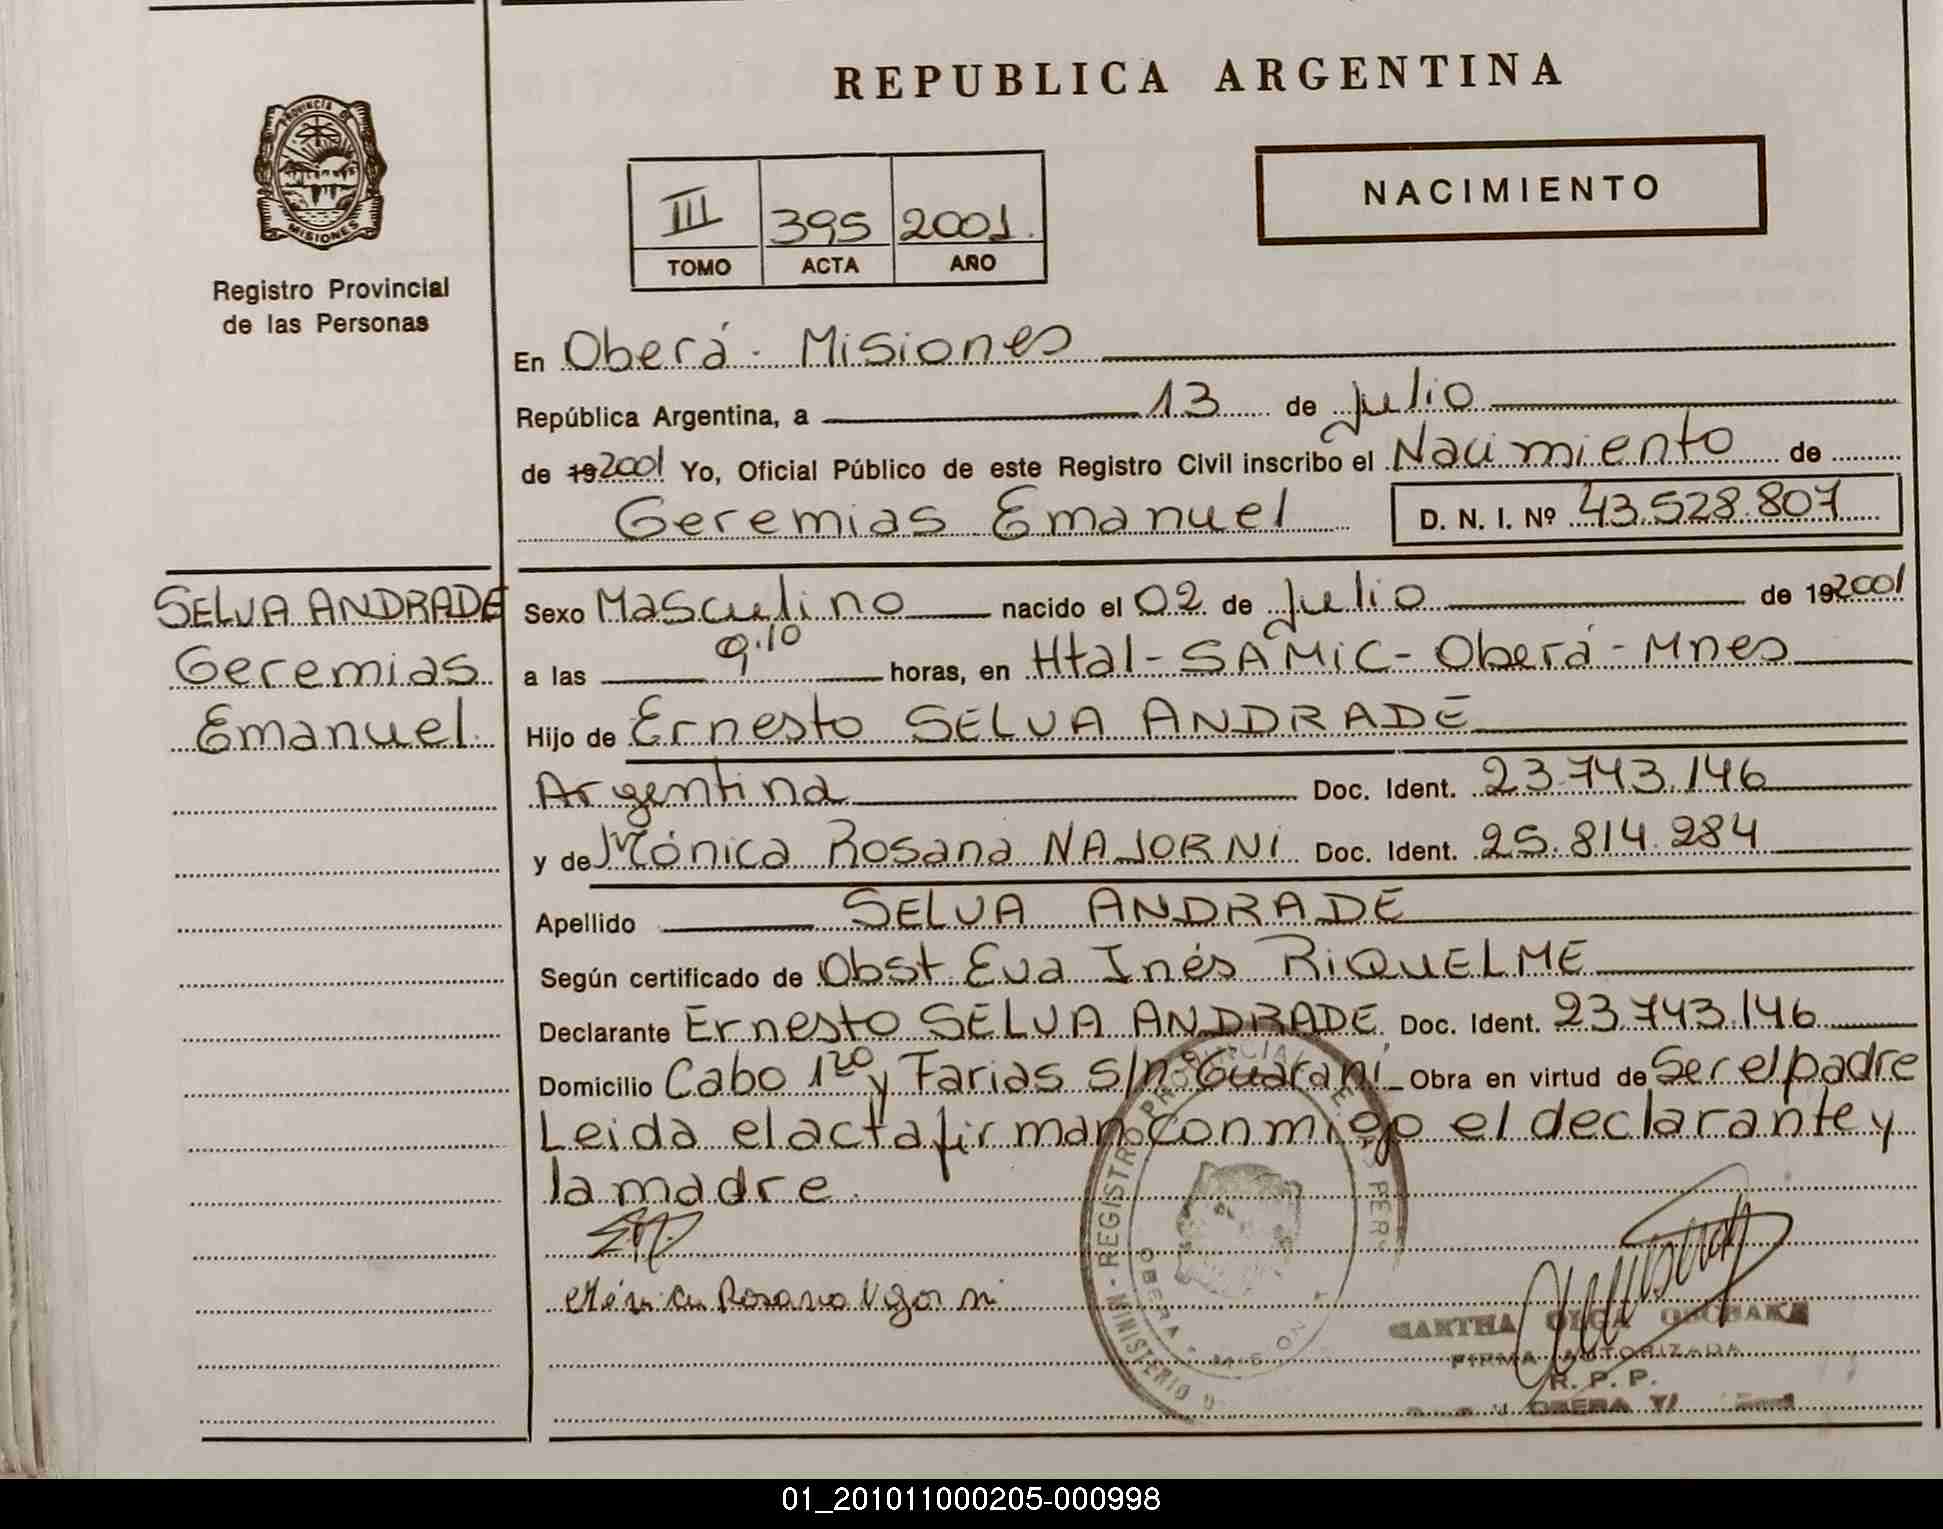 REPUBLICA ARGENTINA
PROVINCIA DE
MISIONES
Registro Provincial
de las Personas
III 395 2001.
TOMO ACTA AÑO
NACIMIENTO
En Oberá - Misiones
República Argentina, a 13 de Julio
de 19 2001 Yo, Oficial Público de este Registro Civil inscribo el Nacimiento de
Geremias Emanuel D. N. I. Nº 43.528.807
SELVA ANDRADE
Geremias
Emanuel.
Sexo Masculino nacido el 02 de Julio de 19 2001
a las 9.10 horas, en Htal - SAMIC - Oberá - Mnes
Hijo de Ernesto SELVA ANDRADE
Argentina Doc. Ident. 23.743.146
y de Mónica Rosana NAJORNI Doc. Ident. 25.814.284
Apellido SELVA ANDRADE
Según certificado de Obst Eva Inés RIQUELME
Declarante Ernesto SELVA ANDRADE. Doc. Ident. 23.743.146
Domicilio Cabo 1ro y Farias s/nº Guaraní Obra en virtud de Ser el padre
Leida el acta firman conmigo el declarante y
la madre.
Rosana
REGISTRO PROVINCIAL DE PER
MINISTERIO
OBERA
OLGA
FIRMA AUTORIZADA
R. P. P.
OBERA
01_201011000205-000998